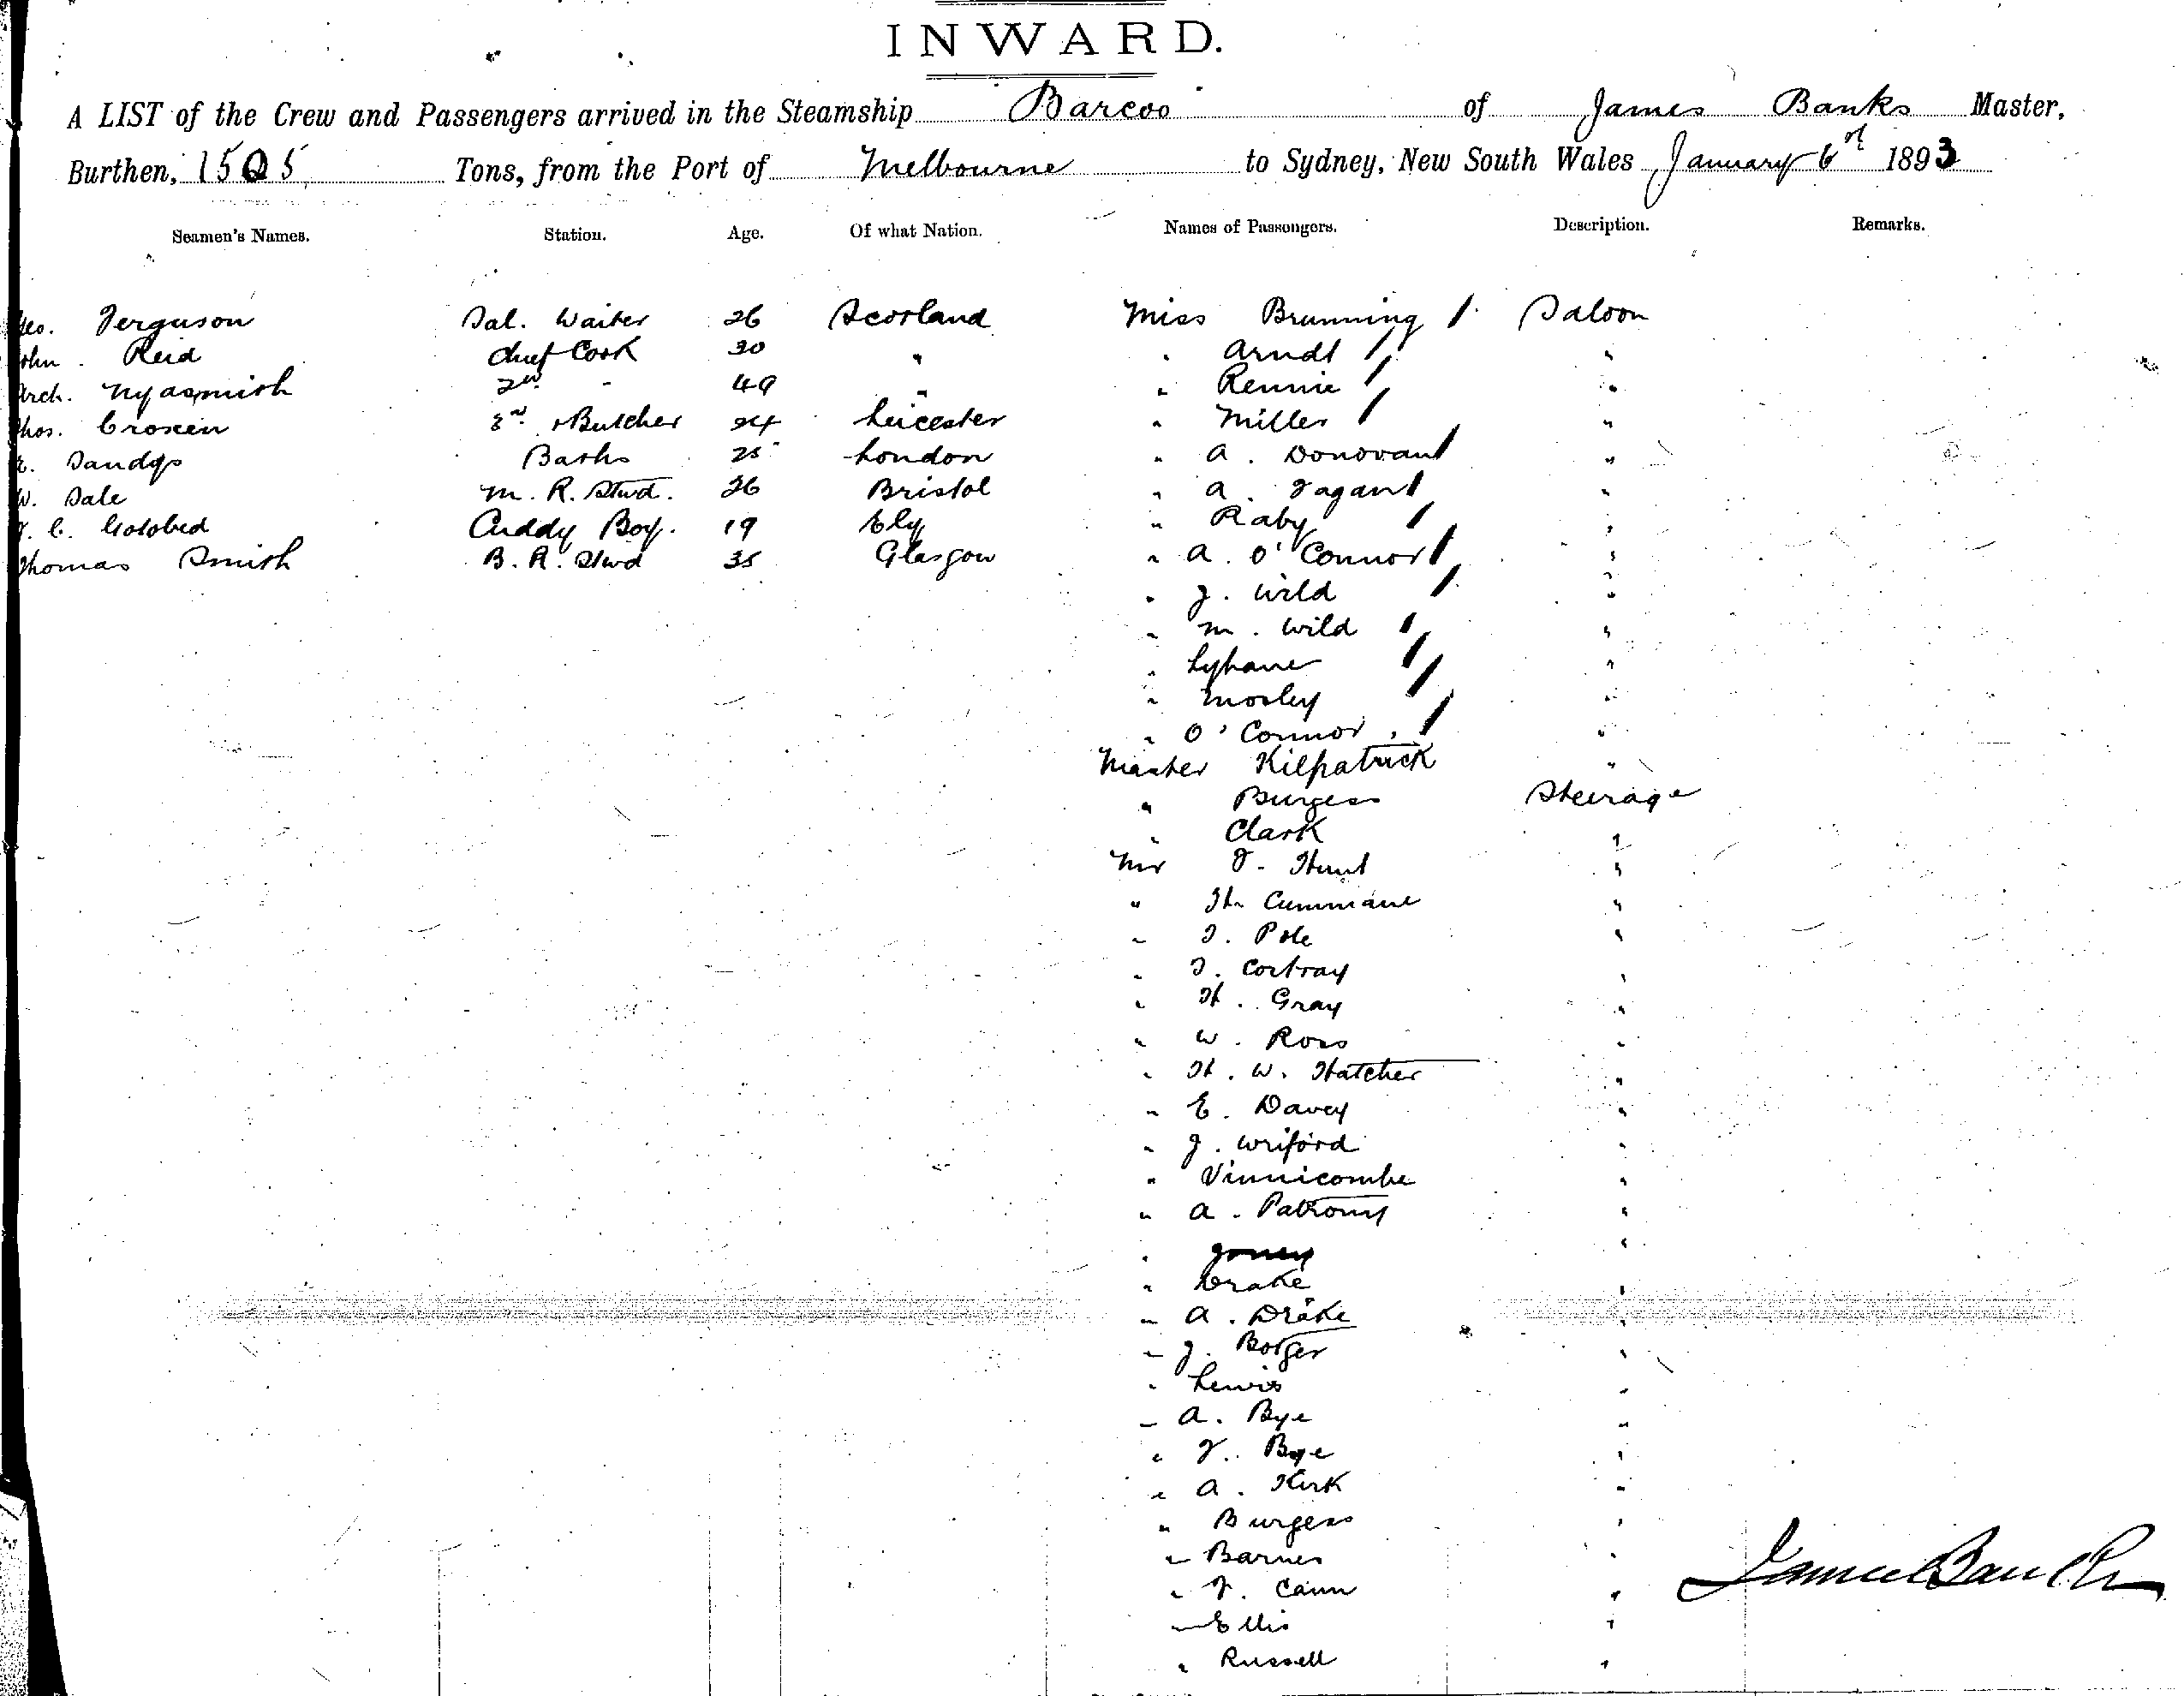 INWARD.
A LIST of the Crew and Passengers arrived in the Steamship Barcoo of James Banks Master,
Burthen, 1505 Tons, from the Port of Melbourne to Sydney, New South Wales January 6th 1893
Seamen's Names. Station. Age. Of what Nation. Names of Passengers. Description. Remarks.
Geo. Ferguson Sal. Waiter 26 Scotland Miss Brunning / Saloon
John Reid Chief Cook 30 " " Arndt / "
Arch. 2nd " 49 " " Rennie / "
Thos. Croxen 3rd & Butcher 24 Leicester " Miller / "
Baths 25 London " A. Donovan / "
W. Dale M. R. Stwd. 26 Bristol " A. Fagan / "
C. Golobed Cuddy Boy. 19 Ely " Raby / "
Thomas Smith B. R. Stwd 35 Glasgow " A. O'Connor / "
" J. Wild / "
" M. Wild / "
" Lyhane / "
" Mosley / "
" O'Connor / "
Master Kilpatrick "
" Burgess Steerage
" Clark "
Mr T. Hunt "
" H. Cummane "
" J. Pole "
" J. Cortray "
" H. Gray "
" W. Ross "
" H. W. Hatcher "
" E. Davey "
" J. Wriford "
" Vinnicombe "
" A. Patrony "
" "
" Drake "
" A. Drake "
" J. Borger "
" Lewis "
" A. Bye "
" F. Bye "
" A. Kirk "
" Burgess "
" Barnes "
" F. Cann "
" Ellis "
" Russell "
James Banks